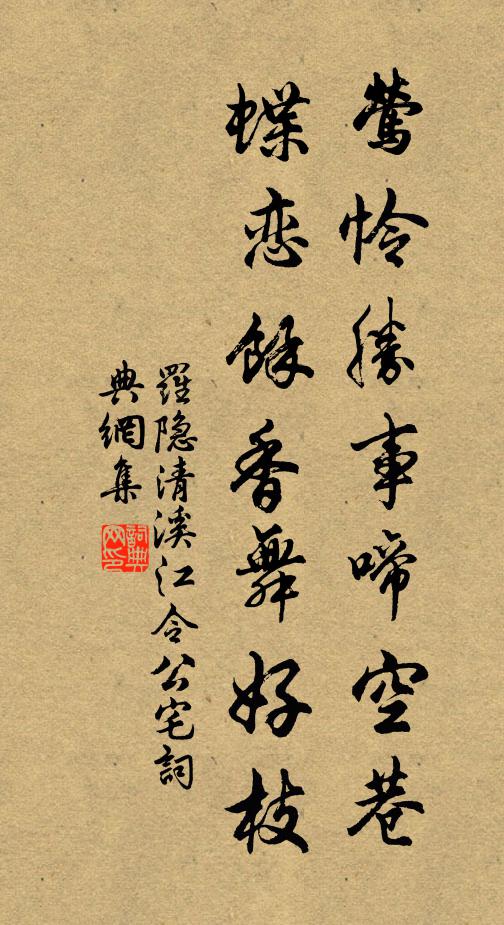 鶯怜勝事啼空巷
蝶恋餘香舞好枝
羅隐清溪江令公宅詞
典網集
詞典网印